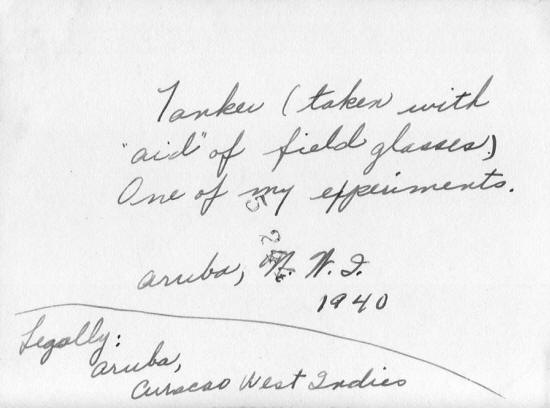 Tanker (taken with
"aid" of field glasses)
One of my experiments.
Aruba, N. W. I.
1940
Legally:
Aruba,
Curacao West Indies